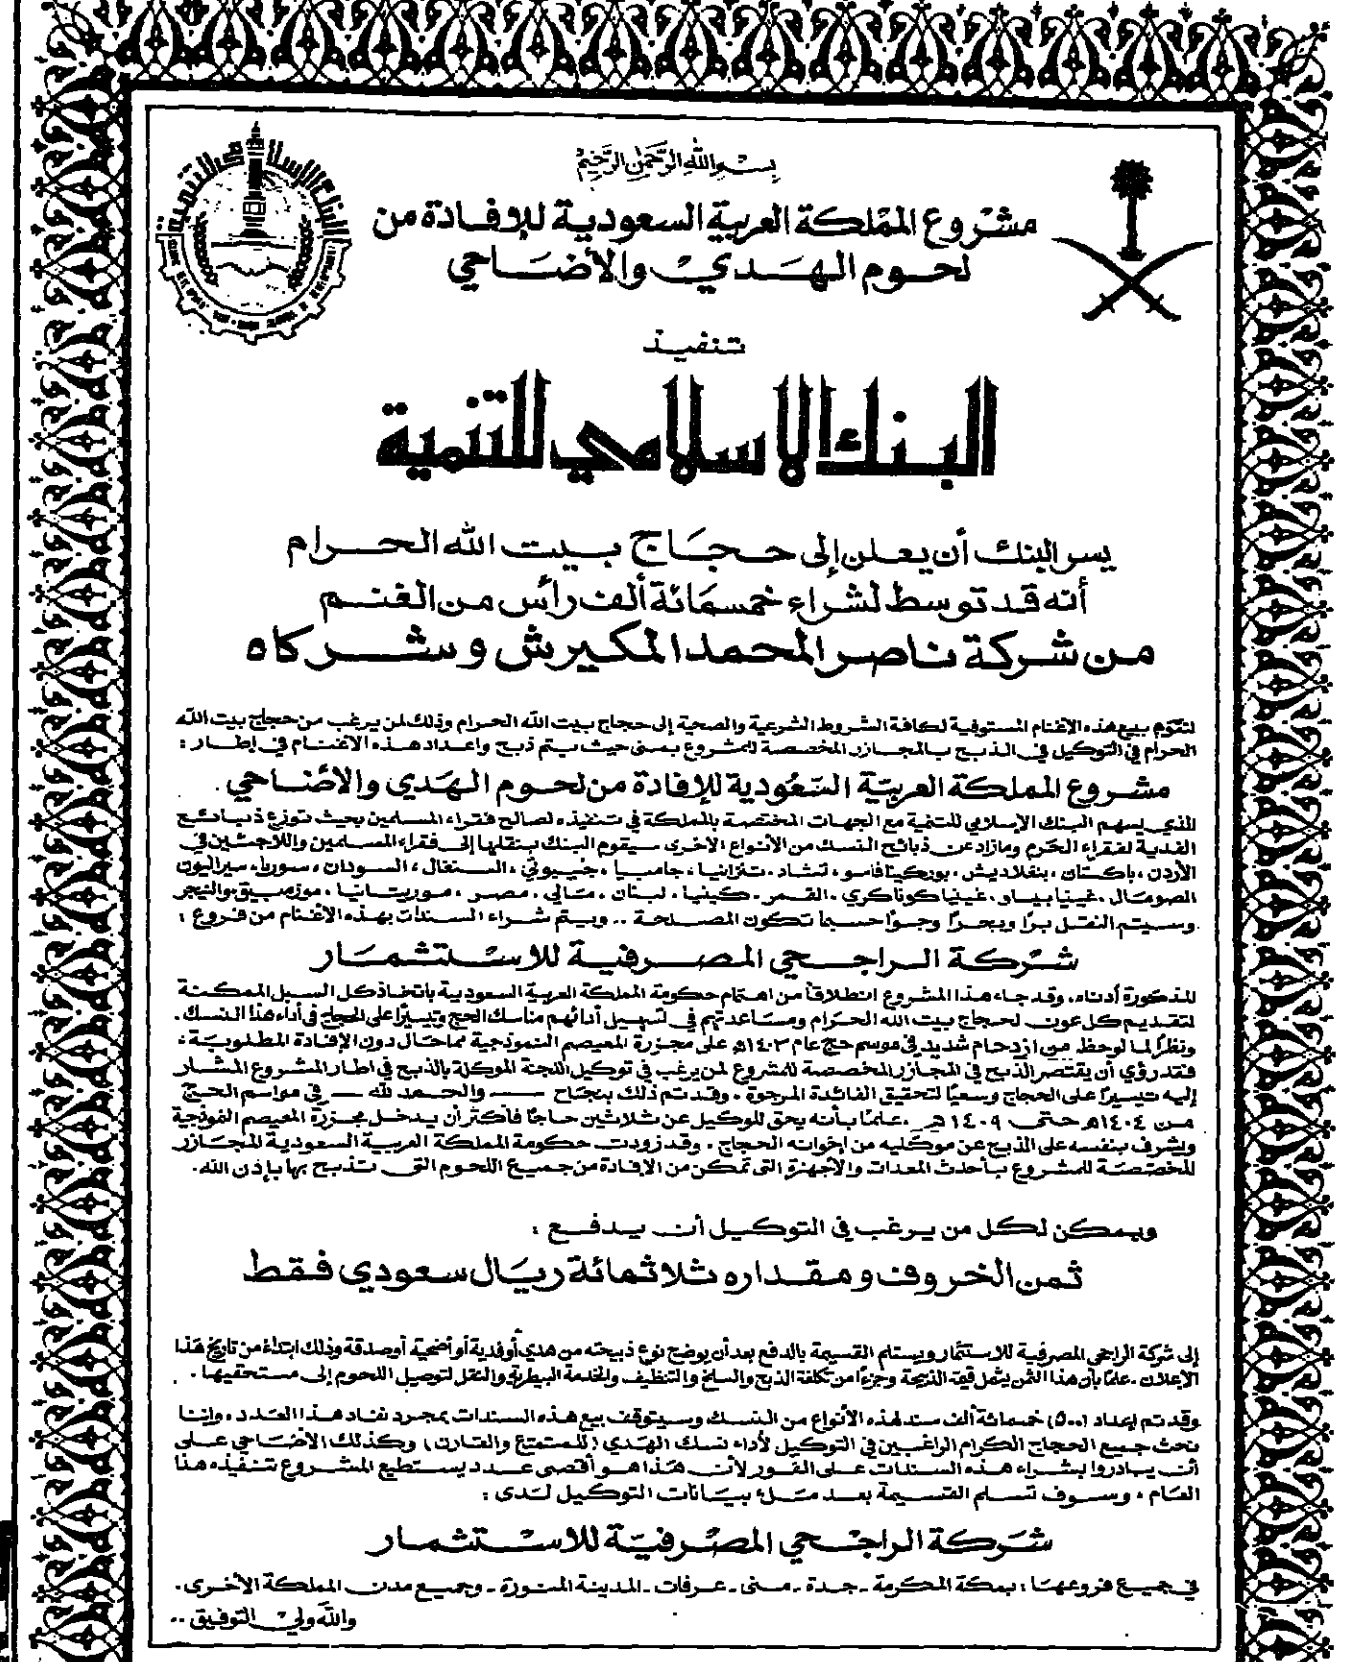 بسم الله الرحمن الرحيم
مشروع المملكة العربية السعودية للإفادة من
لحوم الهدي والأضاحي
تنفيذ
البنك الاسلامي للتنمية
يسر البنك أن يعلن إلى حجاج بيت الله الحرام
أنه قد توسط لشراء خمسمائة ألف رأس من الغنم
من شركة ناصر المحمد المكيرش وشركاه
لتقوم ببيع هذه الأغنام المستوفية لكافة الشروط الشرعية والصحية إلى حجاج بيت الله الحرام وذلك لمن يرغب من حجاج بيت الله
الحرام في التوكيل في الذبح بالمجازر المخصصة للمشروع بمنى حيث يتم ذبح واعداد هذه الاغنام في إطار :
مشروع المملكة العربية السعودية للإفادة من لحوم الهدي والأضاحي
الذي يسهم البنك الإسلامي للتنمية مع الجهات المختصة بالمملكة في تنفيذه لصالح فقراء المسلمين بحيث توزع ذبائح
الفدية لفقراء الحرم ومازاد عن ذبائح النسك من الأنواع الأخرى سيقوم البنك بنقلها إلى فقراء المسلمين واللاجئين في
الأردن ، باكستان ، بنغلاديش ، بوركينافاسو ، تشاد ، تنزانيا ، جامبيا ، جيبوتي ، السنغال ، السودان ، سوريا ، سيراليون
الصومال ، غينيا بيساو ، غينيا كوناكري ، القمر ، كينيا ، لبنان ، مالي ، مصر ، موريتانيا ، موزمبيق والنيجر
وسيتم النقل برًا وبحرًا وجوًا حسبما تكون المصلحة .. ويتم شراء السندات بهذه الأغنام من فروع :
شركة الراجحي المصرفية للاستثمار
المذكورة أدناه . وقد جاء هذا المشروع انطلاقاً من اهتمام حكومة المملكة العربية السعودية باتخاذ كل السبل الممكنة
لتقديم كل عون لحجاج بيت الله الحرام ومساعدتهم في تسهيل أدائهم مناسك الحج وتيسيرًا على الحجاج في أداء هذا النسك .
ونظرًا لما لوحظ من ازدحام شديد في موسم حج عام ١٤٠٣هـ على مجزرة المعيصم النموذجية مما حال دون الإفادة المطلوبة ،
فقد رؤي أن يقتصر الذبح في المجازر المخصصة للمشروع لمن يرغب في توكيل اللجنة الموكلة بالذبح في اطار المشروع المشار
إليه تيسيرًا على الحجاج وسعيًا لتحقيق الفائدة المرجوة ، وقد تم ذلك بنجاح — والحمد لله — في مواسم الحج
من ١٤٠٤هـ حتى ١٤٠٩هـ ، علمًا بأنه يحق للوكيل عن ثلاثين حاجًا فأكثر أن يدخل مجزرة المعيصم النموذجية
ويشرف بنفسه على الذبح عن موكليه من إخوانه الحجاج . وقد زودت حكومة المملكة العربية السعودية المجازر
المخصصة للمشروع بأحدث المعدات والأجهزة التي تمكن من الإفادة من جميع اللحوم التي تذبح بها بإذن الله .
ويمكن لكل من يرغب في التوكيل أن يدفع :
ثمن الخروف ومقداره ثلاثمائة ريال سعودي فقط
إلى شركة الراجحي المصرفية للاستثمار ويستلم القسيمة بالدفع بعد أن يوضح نوع ذبيحته من هدي أو فدية أو أضحية أو صدقة وذلك ابتداءً من تاريخ هذا
الإعلان . علمًا بأن هذا الثمن يشمل قيمة الذبيحة وجزءًا من تكلفة الذبح والسلخ والتنظيف والخدمة البيطرية والنقل لتوصيل اللحوم إلى مستحقيها .
وقد تم إعداد (٥٠٠) خمسمائة ألف سند لهذه الأنواع من النسك وسيتوقف بيع هذه السندات بمجرد نفاد هذا العدد ، وإننا
نحث جميع الحجاج الكرام الراغبين في التوكيل لأداء نسك الهدي ( للمتمتع والقارن ) وكذلك الأضاحي على
أن يبادروا بشراء هذه السندات على الفور لأن هذا هو أقصى عدد يستطيع المشروع تنفيذه هذا
العام ، وسوف تسلم القسيمة بعد ملء بيانات التوكيل لدى :
شركة الراجحي المصرفية للاستثمار
في جميع فروعها : بمكة المكرمة - جدة - منى - عرفات - المدينة المنورة - وجميع مدن المملكة الأخرى .
والله ولي التوفيق ..